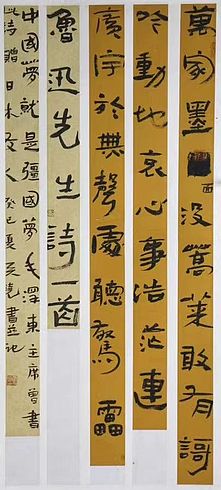 萬家墨面没蒿萊敢有謌
吟動地哀心事浩茫連
廣宇於無聲處聽驚雷
魯迅先生詩一首
中國夢就是彊國夢毛澤東主席曾書
此詩贈日本友人癸巳夏書並記